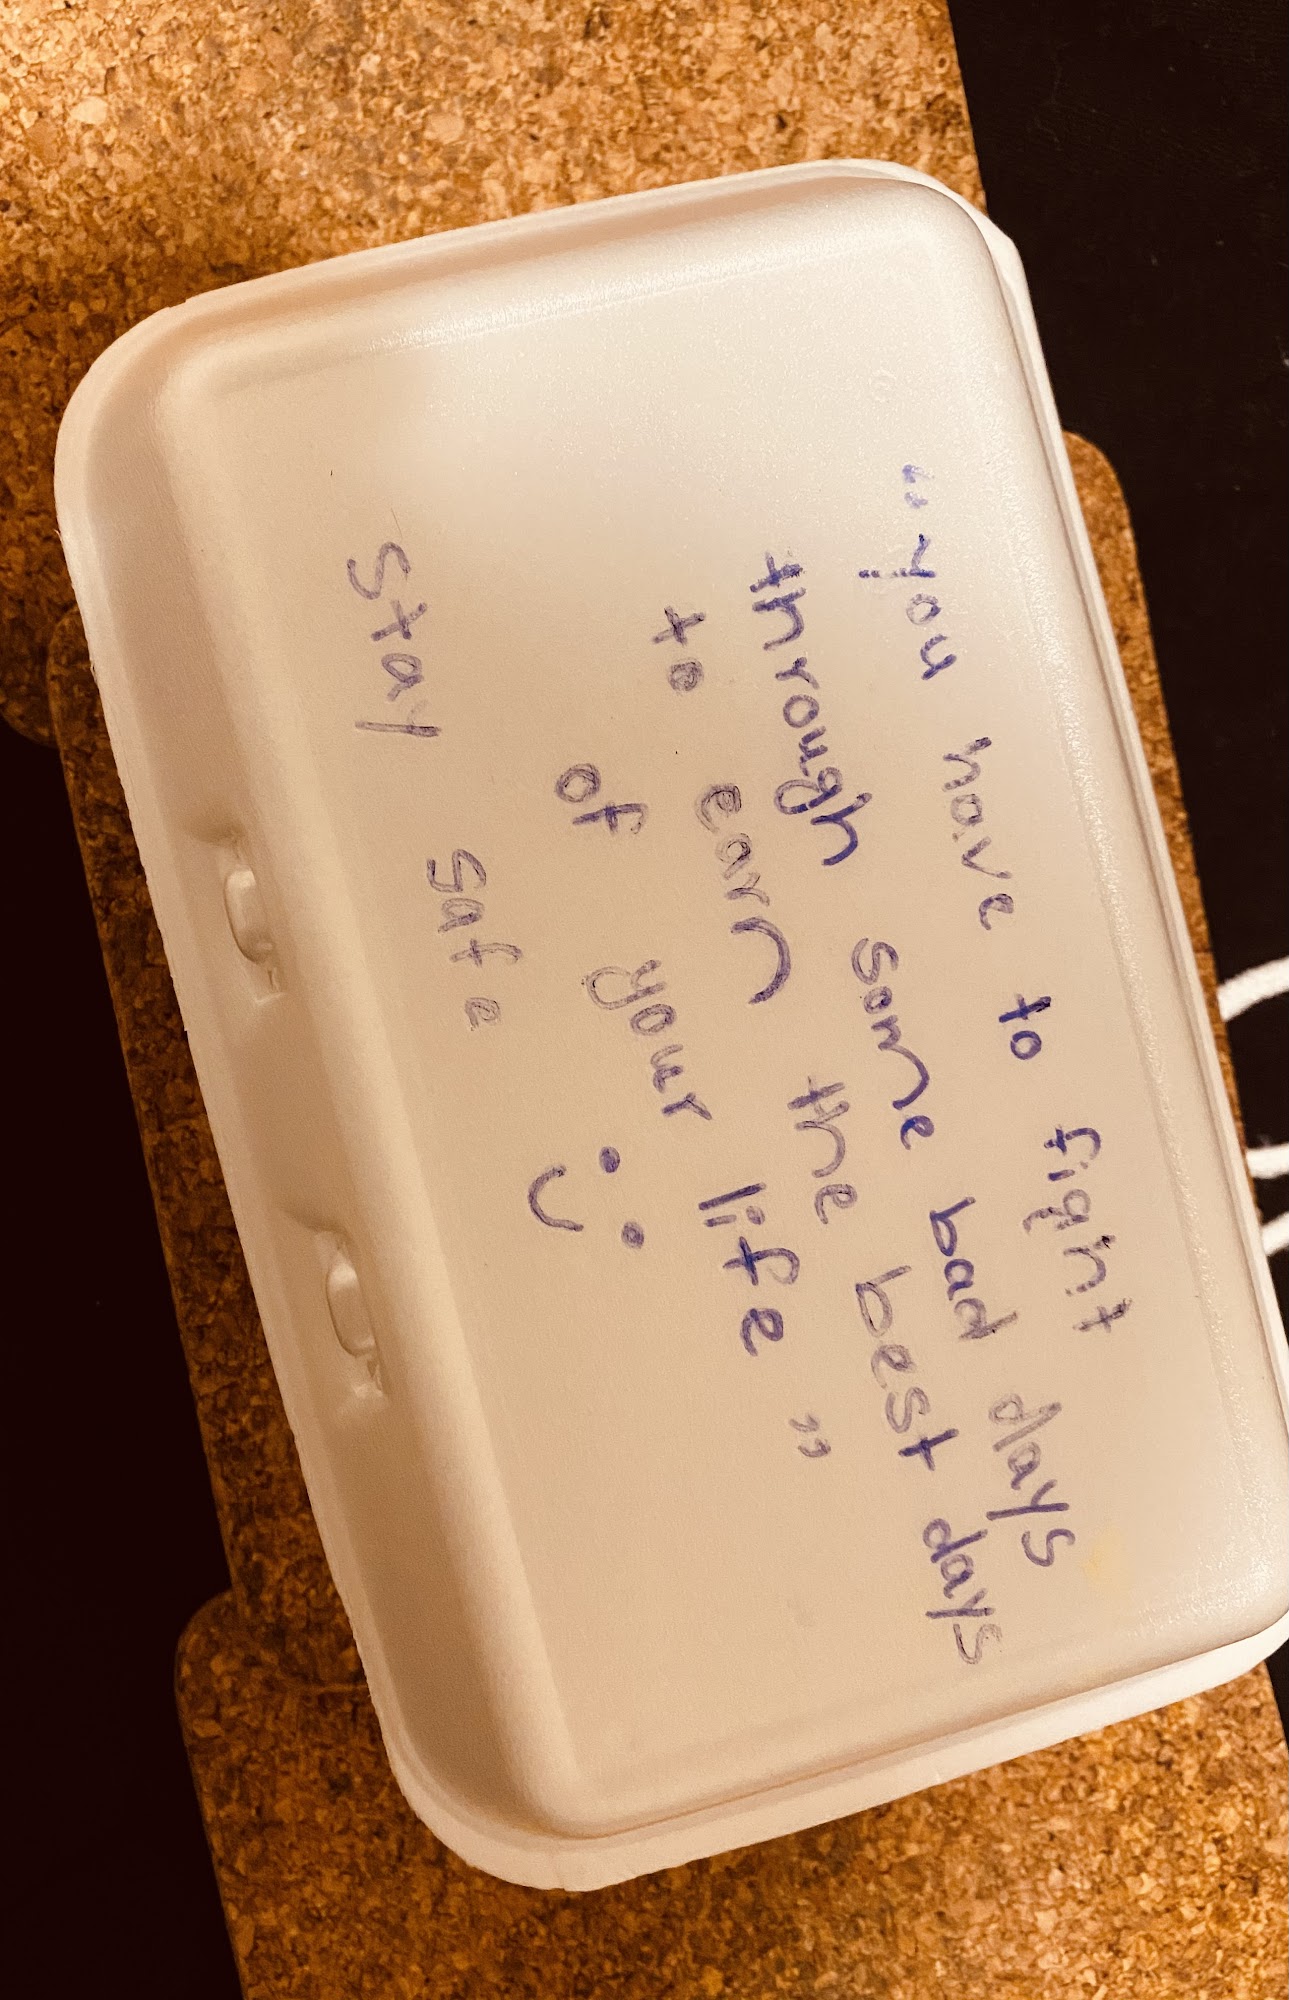 "you have to fight
through some bad days
to earn the best days
of your life"
Stay safe :)